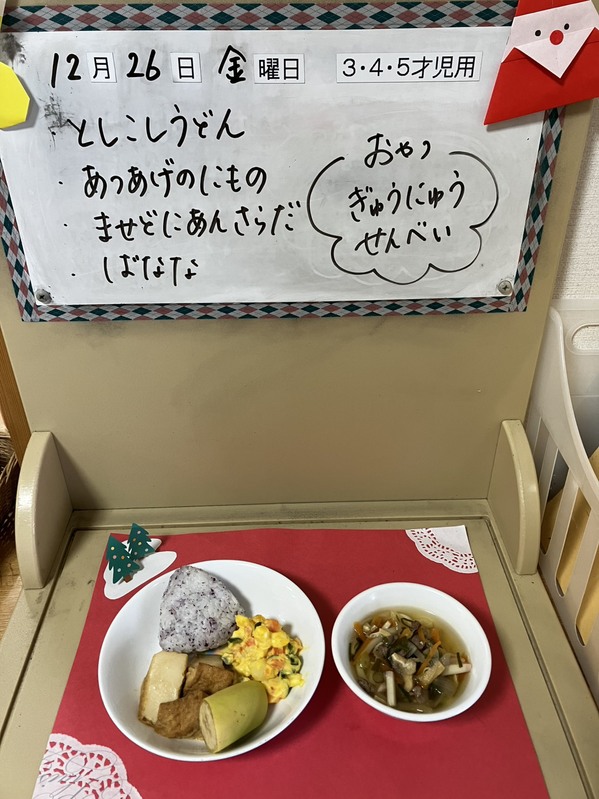 12月26日金曜日 3・4・5才児用
としこしうどん
・あつあげのにもの
・ませどにあんさらだ
・ばなな
おやつ
ぎゅうにゅう
せんべい